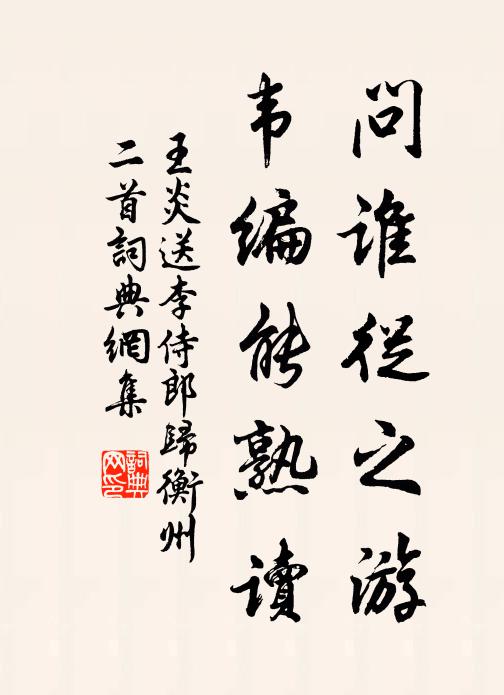 问谁從之游
韦编能熟读
王炎送李侍郎歸衡州
二首詞典網集
詞典网印